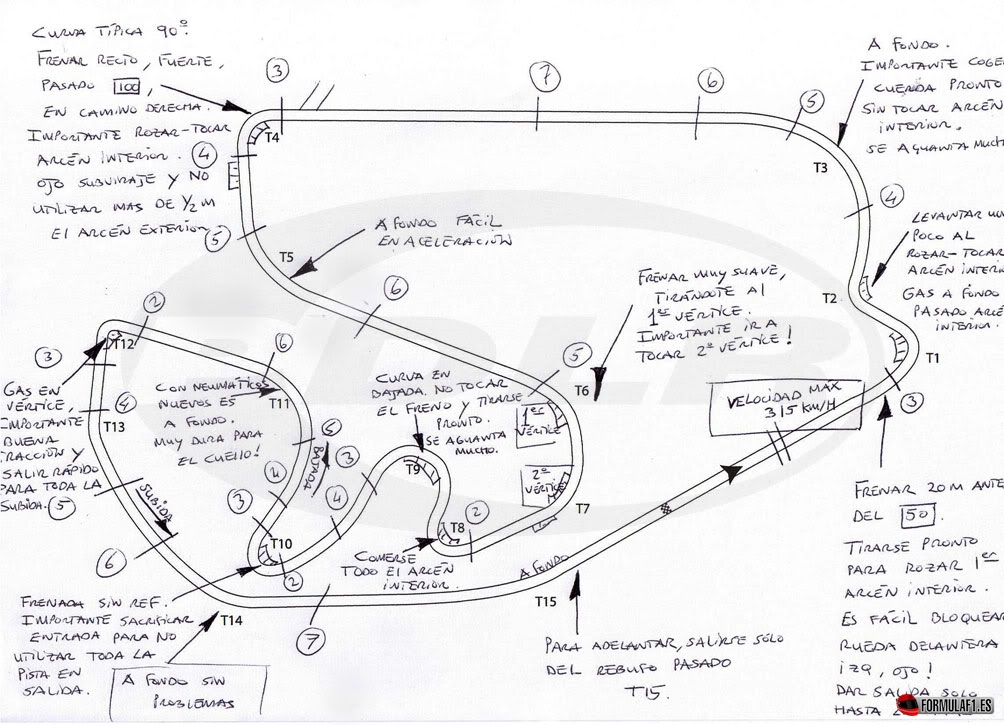 CURVA TÍPICA 90º.
FRENAR RECTO, FUERTE,
PASADO 100,
EN CAMINO DERECHA.
IMPORTANTE ROZAR-TOCAR
ARCÉN INTERIOR.
OJO SUBVIRAJE Y NO
UTILIZAR MAS DE 1/2 M
EL ARCÉN EXTERIOR
3
7
6
5
T4
4
5
T5
A FONDO FÁCIL
EN ACELERACIÓN
6
A FONDO.
IMPORTANTE COGE
CUERDA PRONTO
SIN TOCAR ARCÉN
INTERIOR.
SE AGUANTA MUCHO
T3
4
LEVANTAR UN
POCO AL
ROZAR-TOCAR
ARCÉN INTERI
GAS A FONDO
PASADO ARCÉ
INTERIOR.
T2
T1
3
FRENAR MUY SUAVE,
TIRÁNDOTE AL
1er VÉRTICE.
IMPORTANTE IR A
TOCAR 2º VÉRTICE!
5
T6
1er
VÉRTICE
2º
VÉRTICE
T7
VELOCIDAD MÁX
315 KM/H
2
T12
3
GAS EN
VÉRTICE,
IMPORTANTE
BUENA
TRACCIÓN Y
SALIR RÁPIDO
PARA TODA LA
SUBIDA.
4
T13
5
SUBIDA
6
6
CON NEUMÁTICOS
NUEVOS ES
A FONDO.
MUY DURA PARA
EL CUELLO!
T11
5
BAJADA
4
3
T10
2
CURVA EN
BAJADA. NO TOCAR
EL FRENO Y TIRARSE
PRONTO.
SE AGUANTA
MUCHO.
3
4
T9
T8
2
COMERSE
TODO EL ARCÉN
INTERIOR.
FRENADA SIN REF.
IMPORTANTE SACRIFICAR
ENTRADA PARA NO
UTILIZAR TODA LA
PISTA EN
SALIDA.
T14
A FONDO SIN
PROBLEMAS
7
A FONDO
T15
PARA ADELANTAR, SALIRSE SÓLO
DEL REBUFO PASADO
T15.
FRENAR 20M ANTE
DEL 50.
TIRARSE PRONTO
PARA ROZAR 1er
ARCÉN INTERIOR.
ES FÁCIL BLOQUEAR
RUEDA DELANTERA
IZQ, OJO!
DAR SALIDA SOLO
HASTA
FORMULAF1.ES